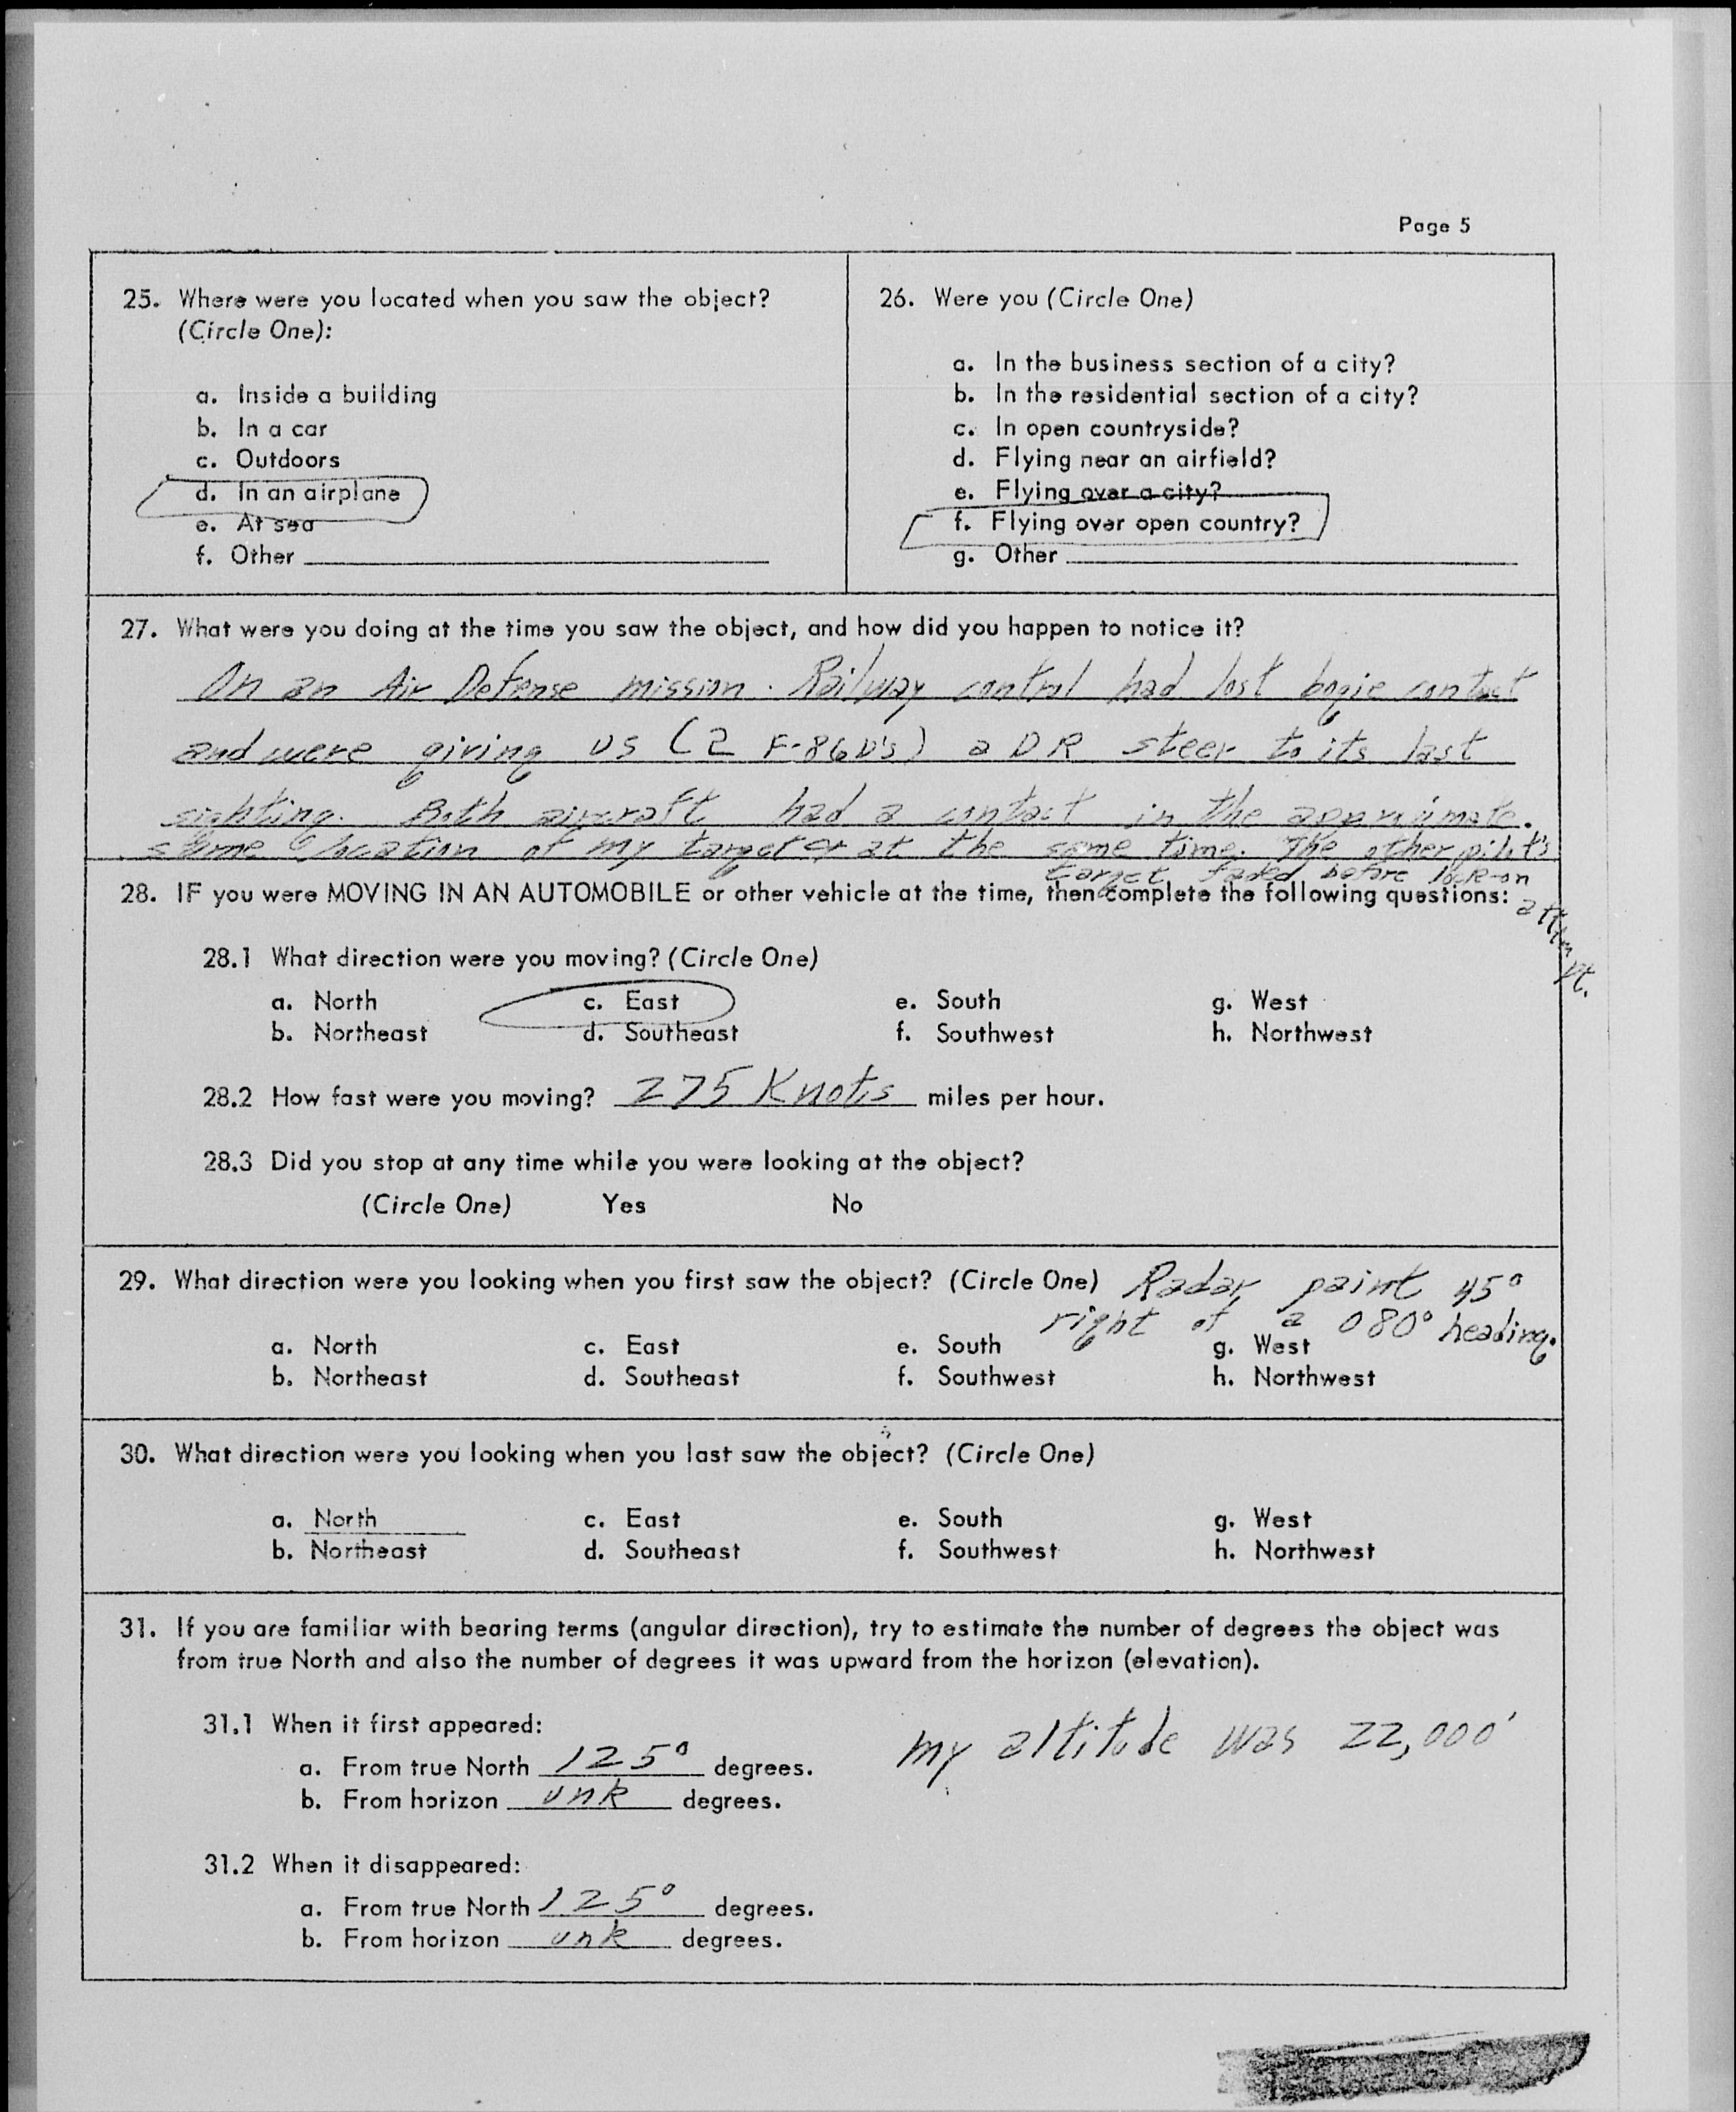 Page 5
25. Where were you located when you saw the object?
(Circle One):
a. Inside a building
b. In a car
c. Outdoors
d. In an airplane
e. At sea
f. Other
26. Were you (Circle One)
a. In the business section of a city?
b. In the residential section of a city?
c. In open countryside?
d. Flying near an airfield?
e. Flying over a city?
f. Flying over open country?
g. Other
27. What were you doing at the time you saw the object, and how did you happen to notice it?
On an Air Defense mission. Railway control had lost bogie contact
and were giving us (2 F-86D's) a DR steer to its last
sighting. Both aircraft had a contact in the approximate
same location of my target at the same time. The other pilot's
target faded before lock-on
attempt.
28. IF you were MOVING IN AN AUTOMOBILE or other vehicle at the time, then complete the following questions:
28.1 What direction were you moving? (Circle One)
a. North c. East e. South g. West
b. Northeast d. Southeast f. Southwest h. Northwest
28.2 How fast were you moving? 275 Knots miles per hour.
28.3 Did you stop at any time while you were looking at the object?
(Circle One) Yes No
29. What direction were you looking when you first saw the object? (Circle One) Radar paint 45°
right of a 080° heading.
a. North c. East e. South g. West
b. Northeast d. Southeast f. Southwest h. Northwest
30. What direction were you looking when you last saw the object? (Circle One)
a. North c. East e. South g. West
b. Northeast d. Southeast f. Southwest h. Northwest
31. If you are familiar with bearing terms (angular direction), try to estimate the number of degrees the object was
from true North and also the number of degrees it was upward from the horizon (elevation).
31.1 When it first appeared:
my altitude was 22,000'
a. From true North 125° degrees.
b. From horizon unk degrees.
31.2 When it disappeared:
a. From true North 125° degrees.
b. From horizon unk degrees.